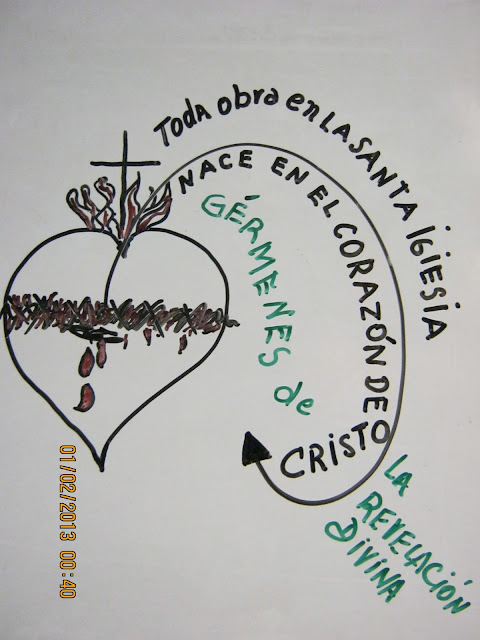 TODA obra en LA SANTA iGlESiA
NACE EN EL CORAZÓN DE
CRiSTO
GÉRMENES de
LA REVELACIÓN
DiViNA
01/02/2013 00:40